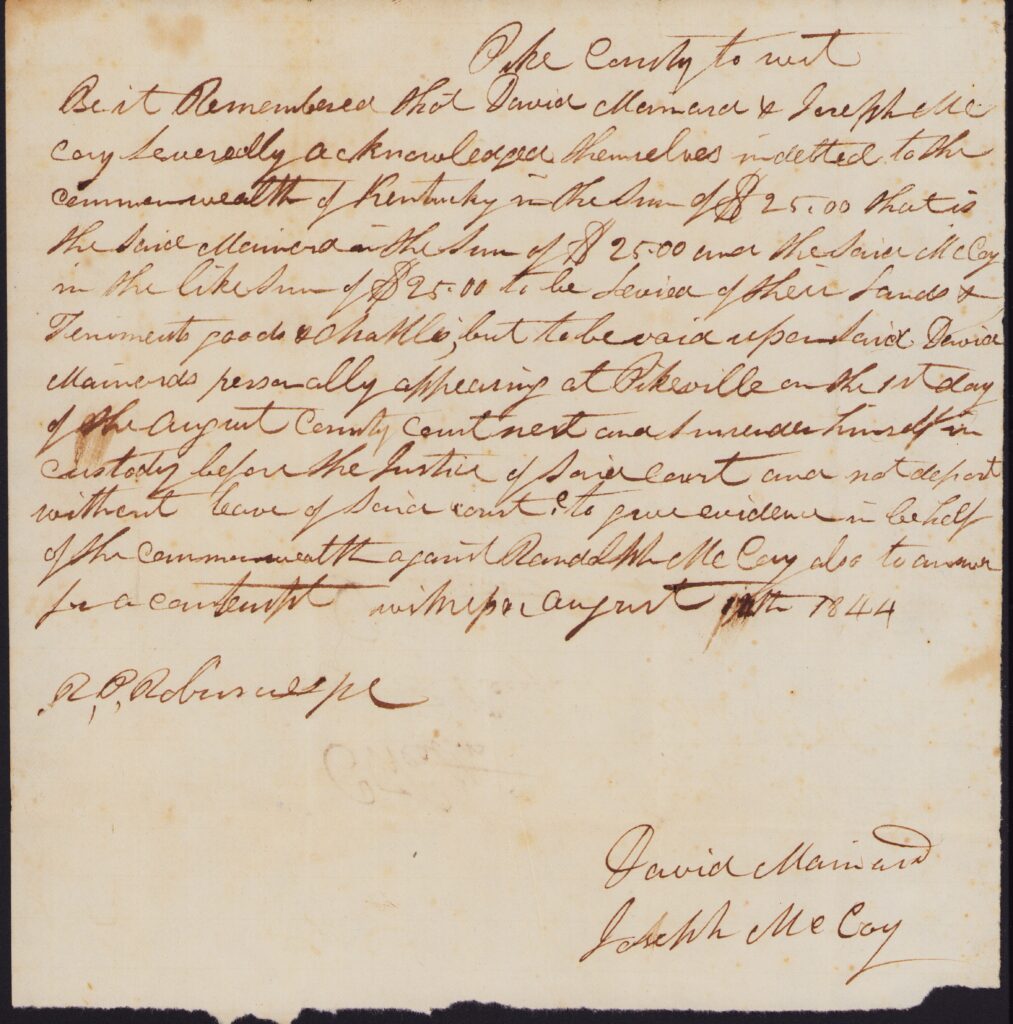 Pike County to wit
Be it Remembered that David Mainard & Joseph Mc
Coy Severedly acknowledged themselves indetted to the
commonwealth of Kentucky in the Sum of $25.00 that is
the said Mainard in the Sum of $25.00 and the said McCoy
in the like Sum of $25.00 to be Levied of their Lands &
Teniments goods & chattles, but to be void upon said David
Mainards personally appearing at Pikeville on the 1st day
of the August County court next and surrender himself in
custody before the Justice of said court and not depart
without leave of said court & to give evidence in behalf
of the commonwealth against Randolph McCoy also to answer
for a contempt witness me August 1844
R. P. Robinson JPC
David Mainard
Joseph McCoy